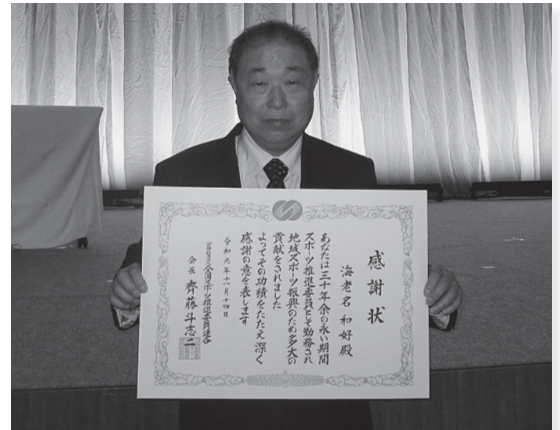 感謝状
海老名 和好殿
あなたは三十年余の永い期間
スポーツ推進委員として勤務され
地域スポーツ振興のため多大の
貢献をされました
よってその功績をたたえ深く
感謝の意を表します
令和元年十一月十四日
全国スポーツ推進委員連合
会長 齊藤斗志二